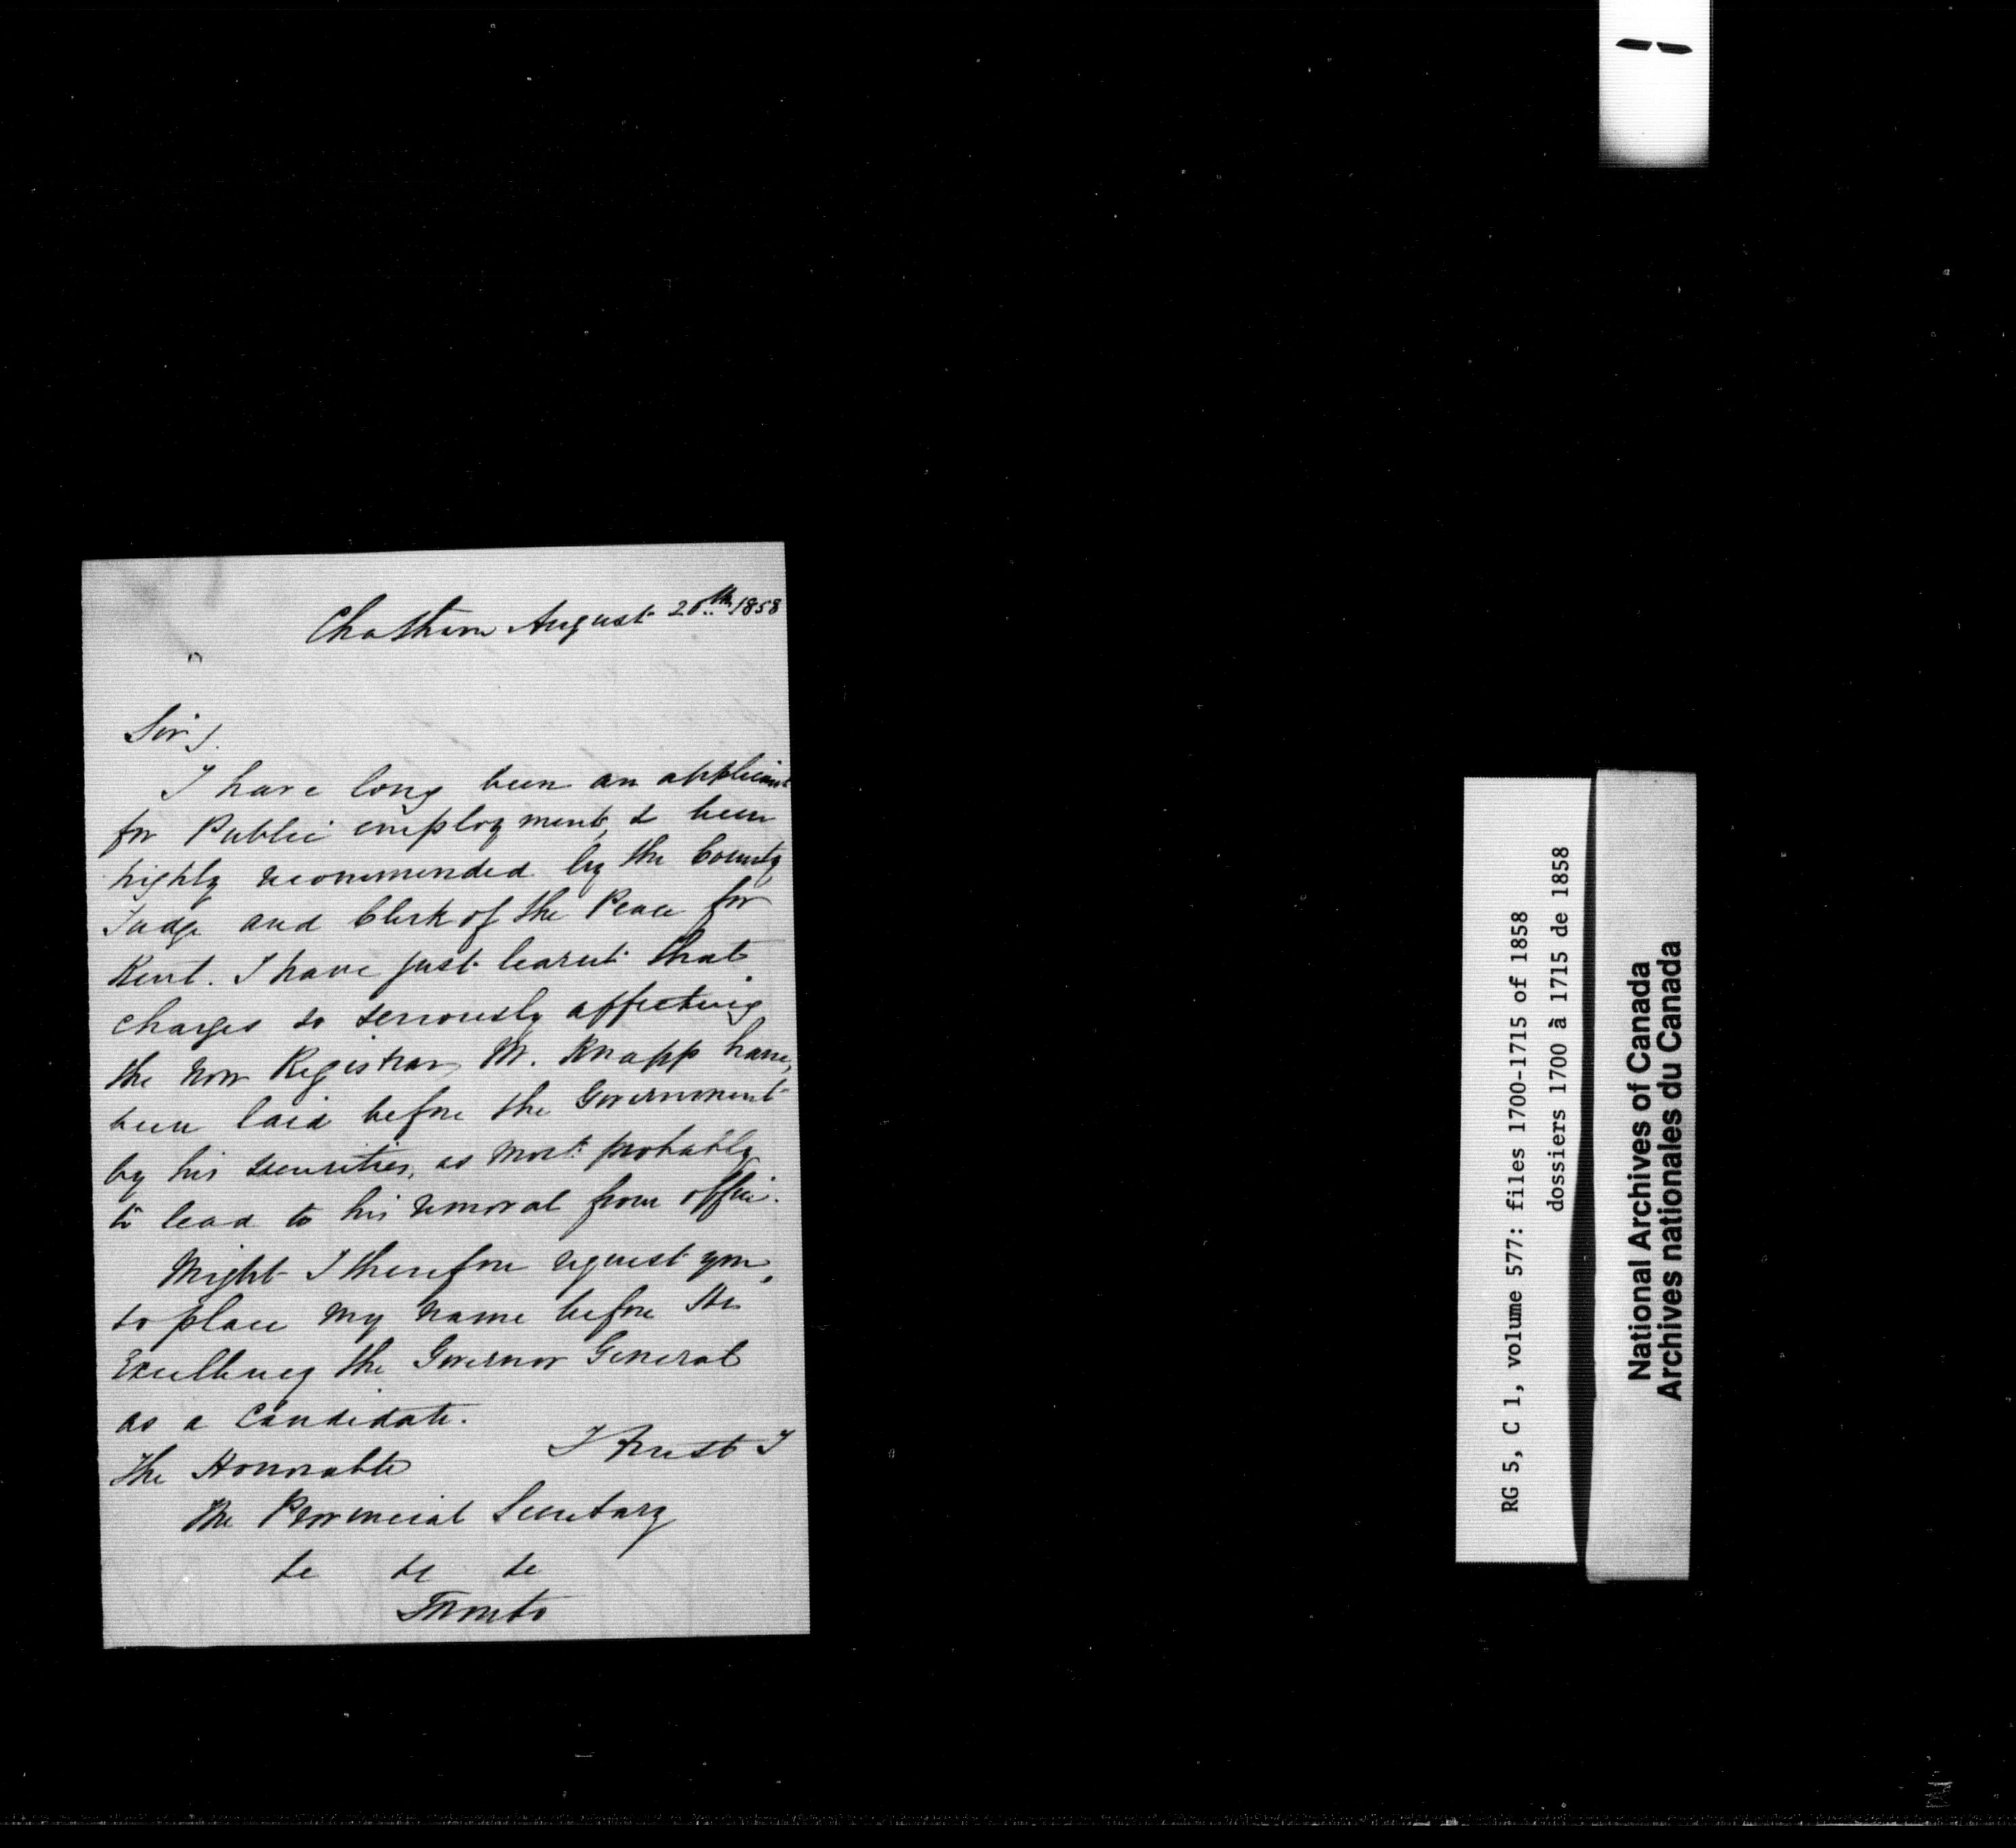 Chatham August 20th 1858
Sir,
I have long been an applicant
for Public employment, & been
highly recommended by the County
Judge and Clerk of the Peace for
Kent. I have just learnt that
charges so seriously affecting
the now Registrar, Mr. Knapp have,
been laid before the Government
by his securities, as most probably
to lead to his removal from office.
Might I therefore request you,
to place my name before His
Excellency the Governor General
as a Candidate.
I trust I
The Honorable
The Provincial Secretary
&c &c &c
Toronto
RG 5, C 1, volume 577: files 1700-1715 of 1858
dossiers 1700 à 1715 de 1858
National Archives of Canada
Archives nationales du Canada